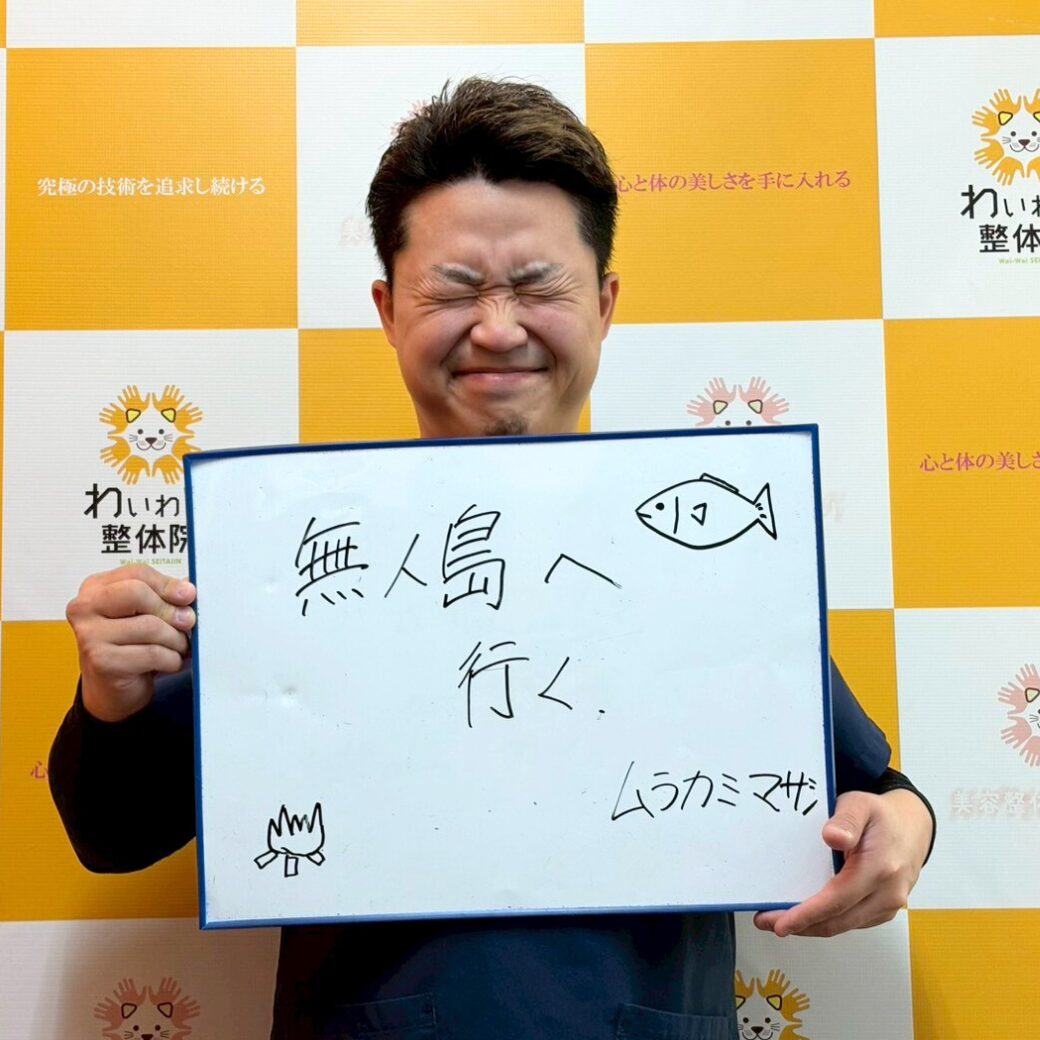 究極の技術を追求し続ける
心と体の美しさを手に入れる
わいわ
整体
わいわ
整体院
Wai-Wai SEITAIIN
心と体の美しさ
無人島へ
行く.
ムラカミマサシ
心
美容整体